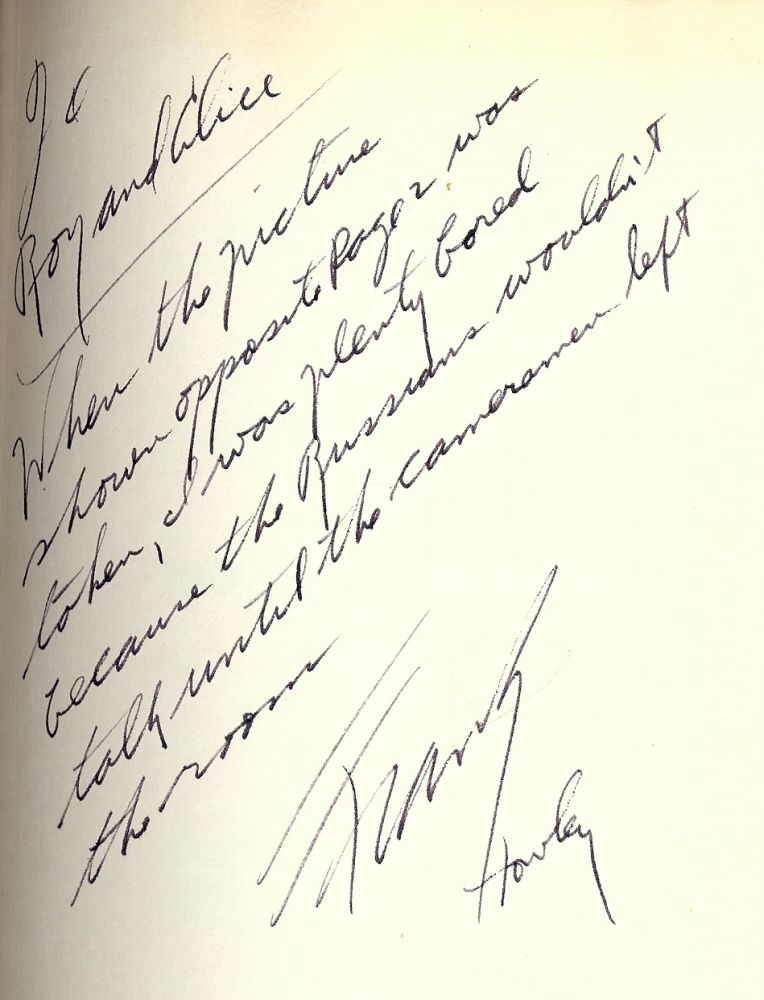 To
Roy and Alice
When the picture
shown opposite Page 2 was
taken, I was plenty bored
because the Russians wouldn't
talk until the cameramen left
the room
Frank
Howley